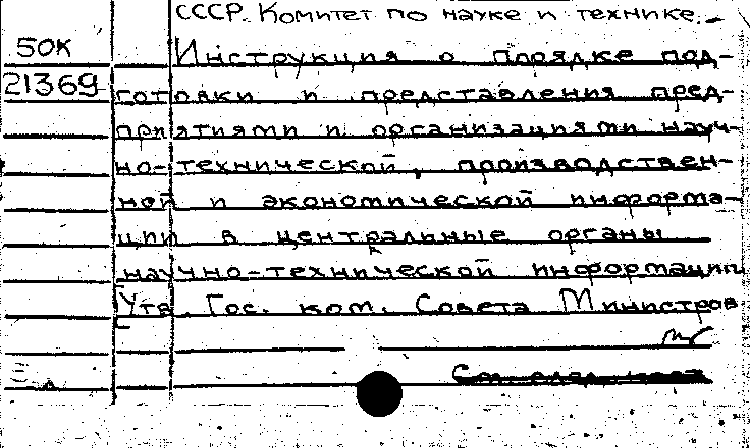 СССР. Комитет по науке и технике.
50К
Инструкция о порядке под-
21369
готовки и представления пред-
приятиями и организациями науч-
но-технической, производствен-
ной и экономической информа-
ции в центральные органы
научно-технической информации
Утв. Гос. ком. Совета Министров
См. след. карт